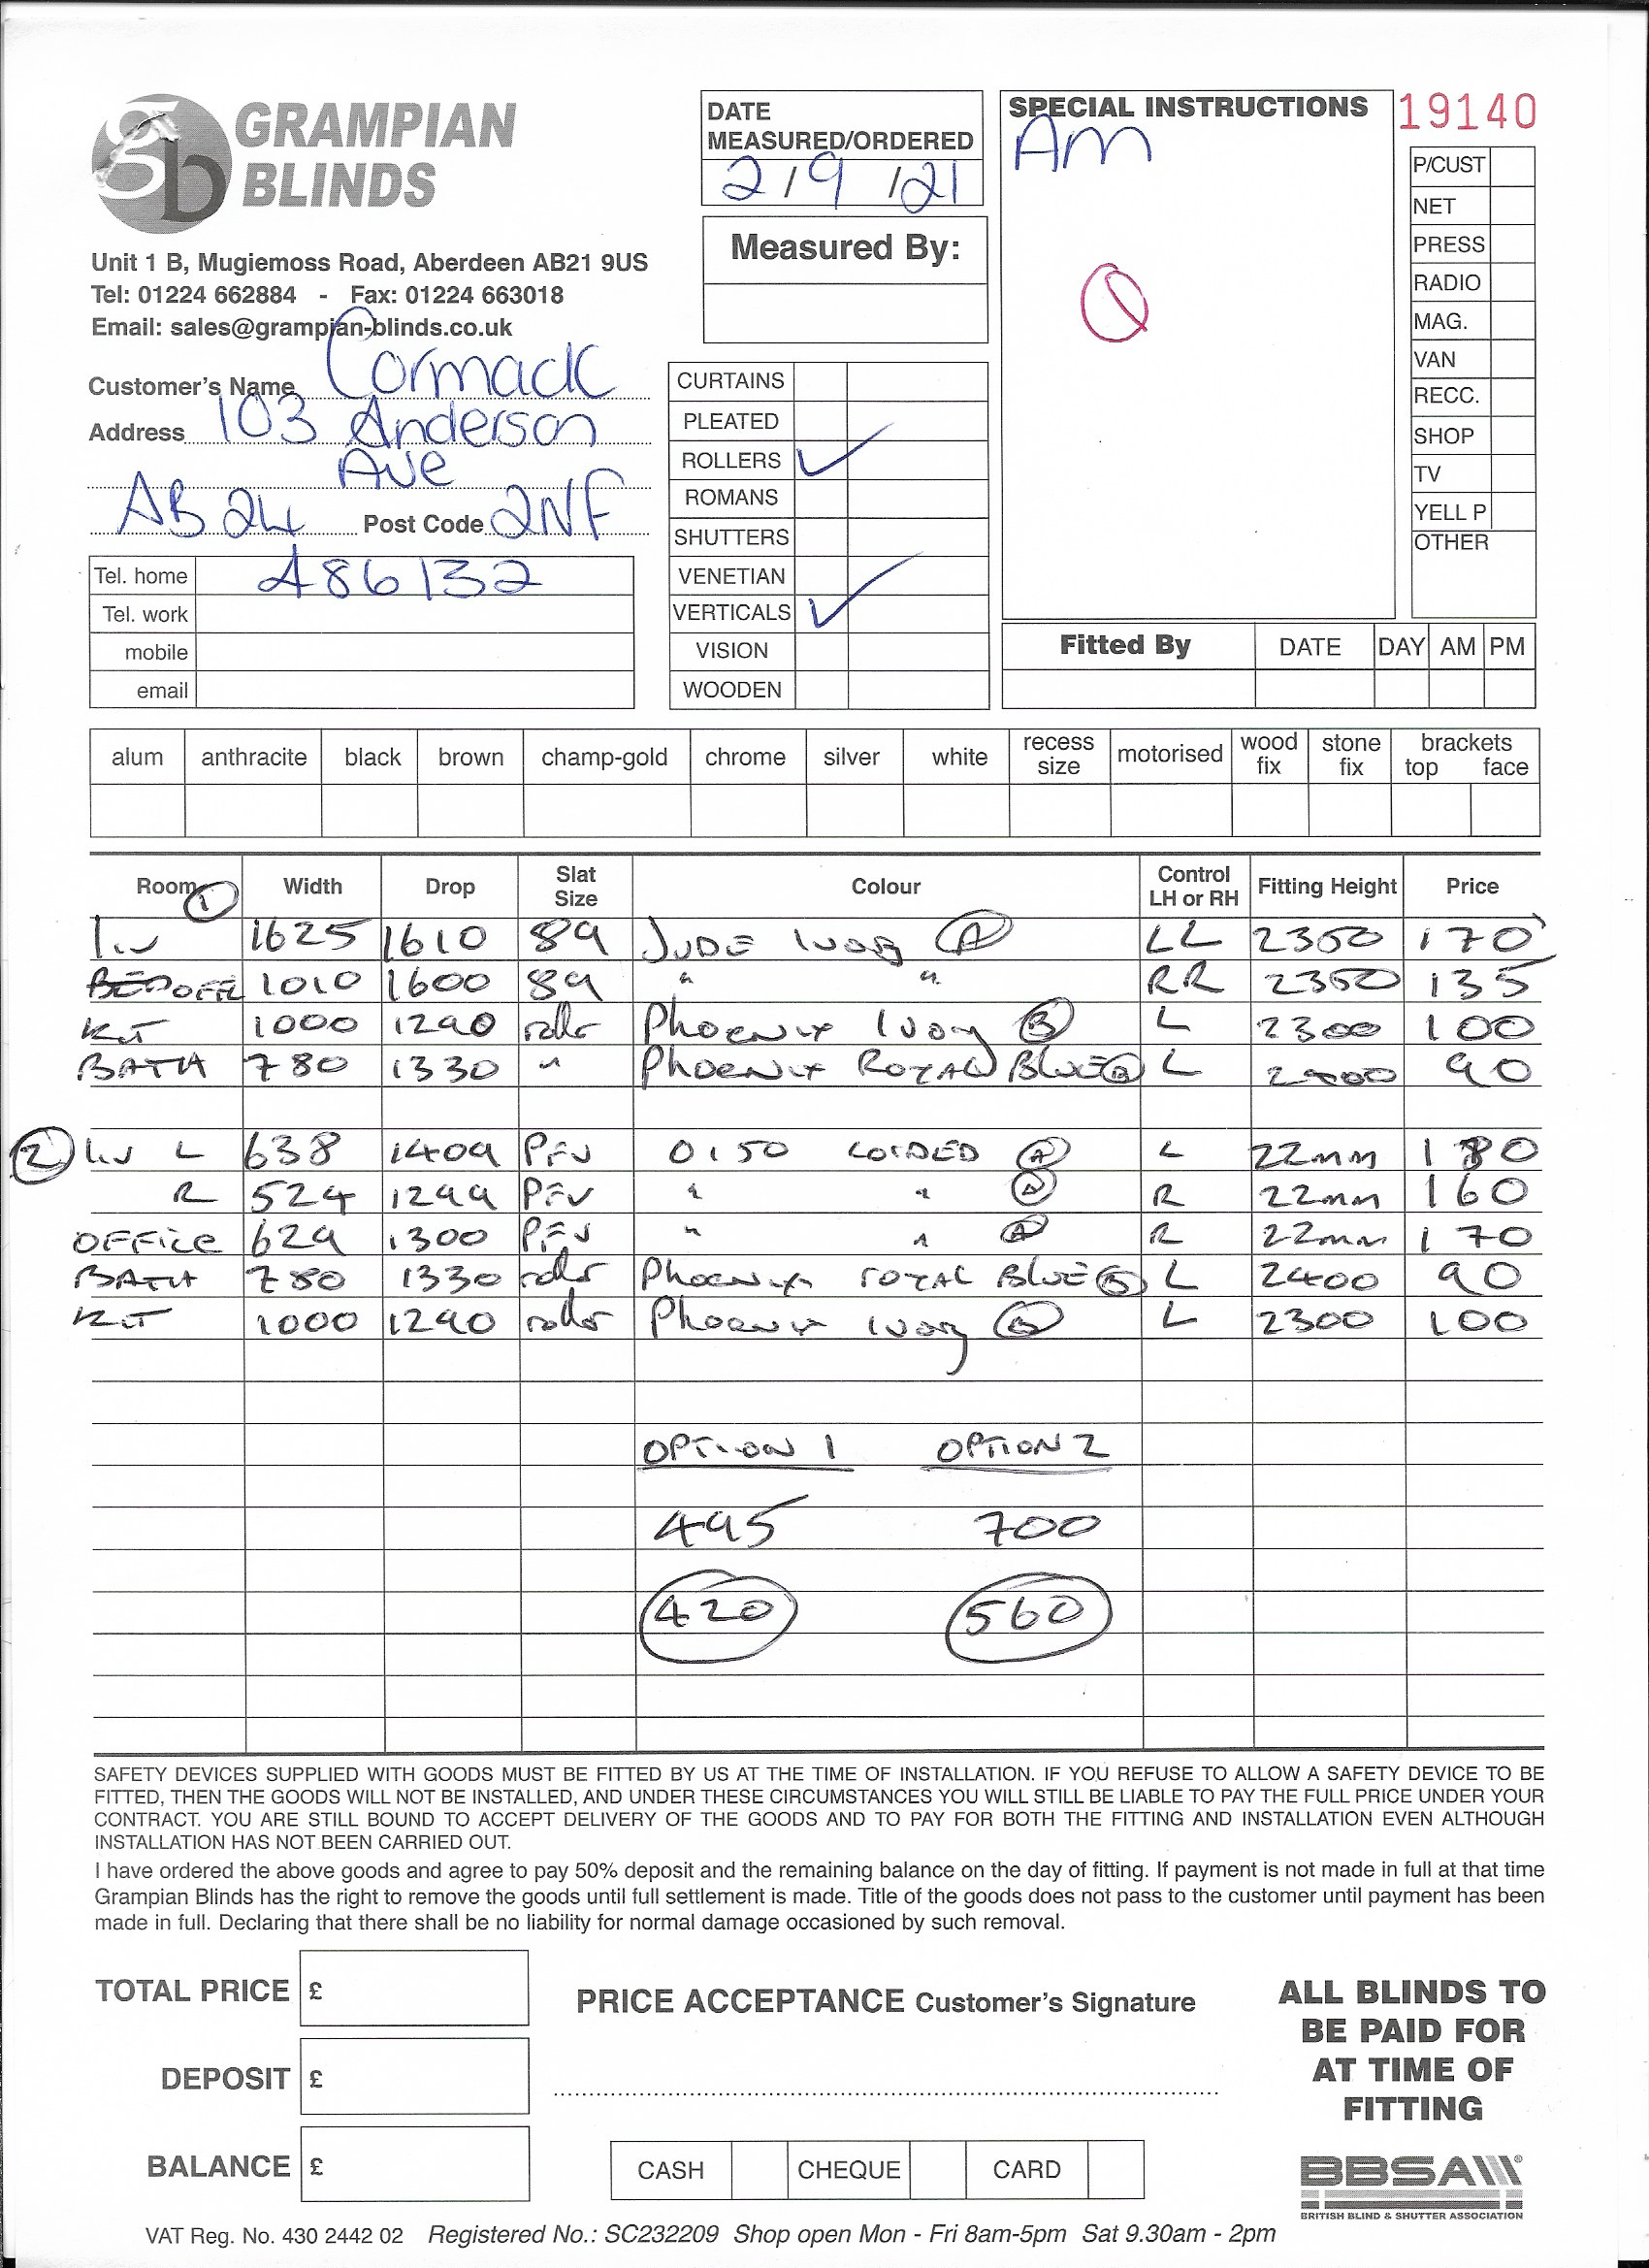 GRAMPIAN
BLINDS
gb
Unit 1 B, Mugiemoss Road, Aberdeen AB21 9US
Tel: 01224 662884 - Fax: 01224 663018
Email: sales@grampian-blinds.co.uk
Customer's Name Cormack
Address 103 Anderson
Ave
AB24 Post Code 2NF
Tel. home 486132
Tel. work
mobile
email
DATE
MEASURED/ORDERED
2/9/21
Measured By:
CURTAINS
PLEATED
ROLLERS ✓
ROMANS
SHUTTERS
VENETIAN
VERTICALS ✓
VISION
WOODEN
SPECIAL INSTRUCTIONS
AM
19140
P/CUST
NET
PRESS
RADIO
MAG.
VAN
RECC.
SHOP
TV
YELL P
OTHER
Fitted By DATE DAY AM PM
alum anthracite black brown champ-gold chrome silver white recess size motorised wood fix stone fix brackets top face
Room Width Drop Slat Size Colour Control LH or RH Fitting Height Price
① Liv 1625 1610 89 JUDE Ivory Ⓐ LL 2350 170
OFF 1010 1600 89 " " RR 2350 135
KIT 1000 1290 roller Phoenix Ivory Ⓑ L 2300 100
BATH 780 1330 " Phoenix ROYAL BLUE Ⓑ L 90
② Liv L 638 1409 PFV 0150 CORDED Ⓐ L 22mm 180
R 524 1299 PFV " " Ⓐ R 22mm 160
OFFICE 629 1300 PFV " " Ⓐ R 22mm 170
BATH 780 1330 roller Phoenix ROYAL BLUE Ⓑ L 2400 90
KIT 1000 1290 roller Phoenix Ivory Ⓑ L 2300 100
OPTION 1 OPTION 2
495 700
420 560
SAFETY DEVICES SUPPLIED WITH GOODS MUST BE FITTED BY US AT THE TIME OF INSTALLATION. IF YOU REFUSE TO ALLOW A SAFETY DEVICE TO BE
FITTED, THEN THE GOODS WILL NOT BE INSTALLED, AND UNDER THESE CIRCUMSTANCES YOU WILL STILL BE LIABLE TO PAY THE FULL PRICE UNDER YOUR
CONTRACT. YOU ARE STILL BOUND TO ACCEPT DELIVERY OF THE GOODS AND TO PAY FOR BOTH THE FITTING AND INSTALLATION EVEN ALTHOUGH
INSTALLATION HAS NOT BEEN CARRIED OUT.
I have ordered the above goods and agree to pay 50% deposit and the remaining balance on the day of fitting. If payment is not made in full at that time
Grampian Blinds has the right to remove the goods until full settlement is made. Title of the goods does not pass to the customer until payment has been
made in full. Declaring that there shall be no liability for normal damage occasioned by such removal.
TOTAL PRICE £
DEPOSIT £
BALANCE £
PRICE ACCEPTANCE Customer's Signature
CASH CHEQUE CARD
ALL BLINDS TO
BE PAID FOR
AT TIME OF
FITTING
BBSA
BRITISH BLIND & SHUTTER ASSOCIATION
VAT Reg. No. 430 2442 02 Registered No.: SC232209 Shop open Mon - Fri 8am-5pm Sat 9.30am - 2pm